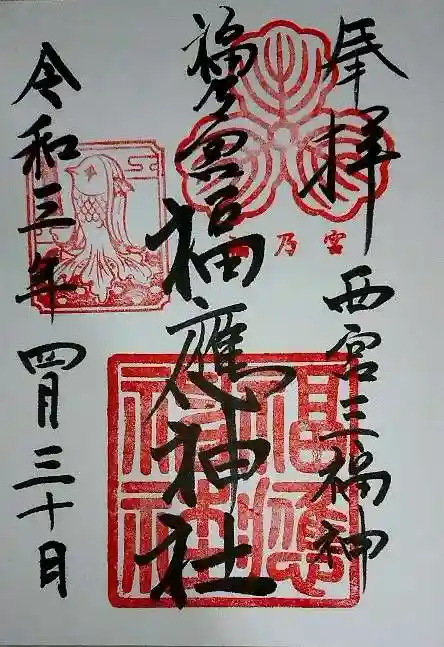 奉拝
西宮三福神
福乃宮
福應神社
令和三年四月三十日
乃宮
福應神社